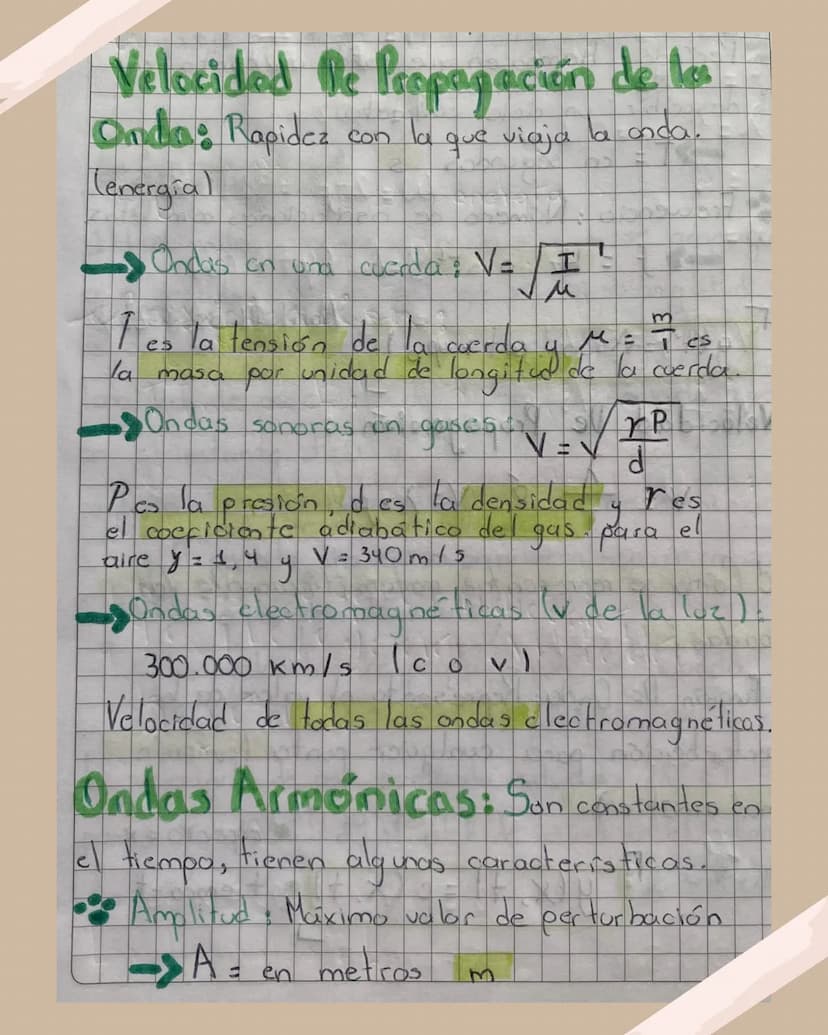 Velocidad De Propagación de la
Onda: Rapidez con la que viaja la onda.
(energía)
→ Ondas en una cuerda: V= √T/μ
T es la tensión de la cuerda y μ = m/l es
la masa por unidad de longitud de la cuerda.
→ Ondas sonoras en gases: V = √γP/d
P es la presión, d es la densidad y γ es
el coeficiente adiabático del gas. para el
aire γ = 1,4 y V = 340 m/s
→ Ondas electromagnéticas (v de la luz):
300.000 km/s (c o v)
Velocidad de todas las ondas electromagnéticas.
Ondas Armónicas: Son constantes en
el tiempo, tienen algunas características.
Amplitud: Máximo valor de perturbación
→ A = en metros m